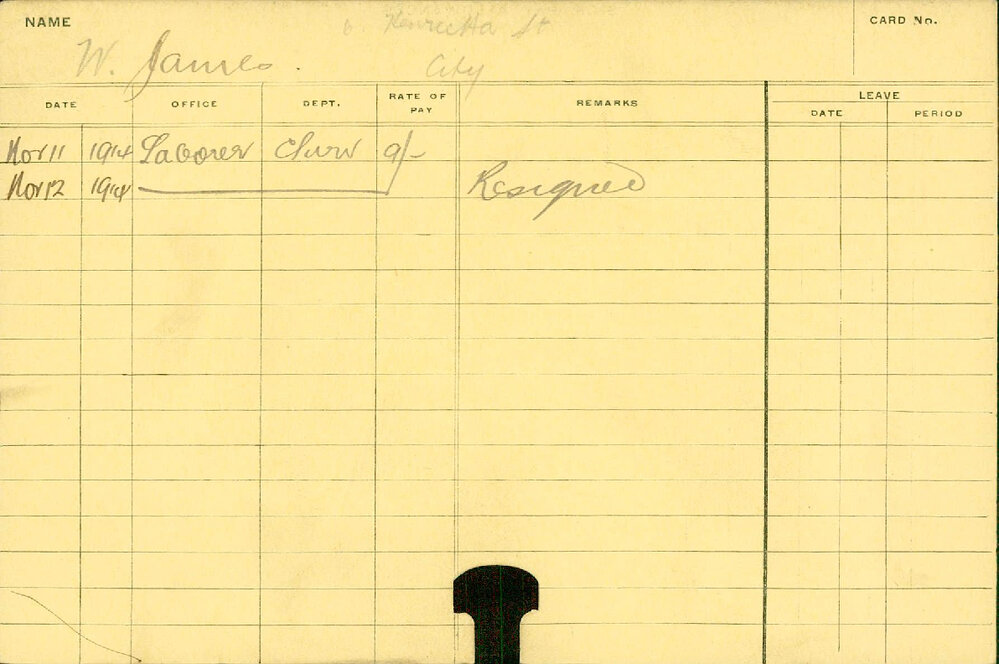 NAME
CARD No.
Henrietta St
W. James.
City
DATE OFFICE DEPT. RATE OF PAY REMARKS LEAVE
DATE PERIOD
Nov 11 1914 Laborer 9/-
Nov 12 1914 Resigned